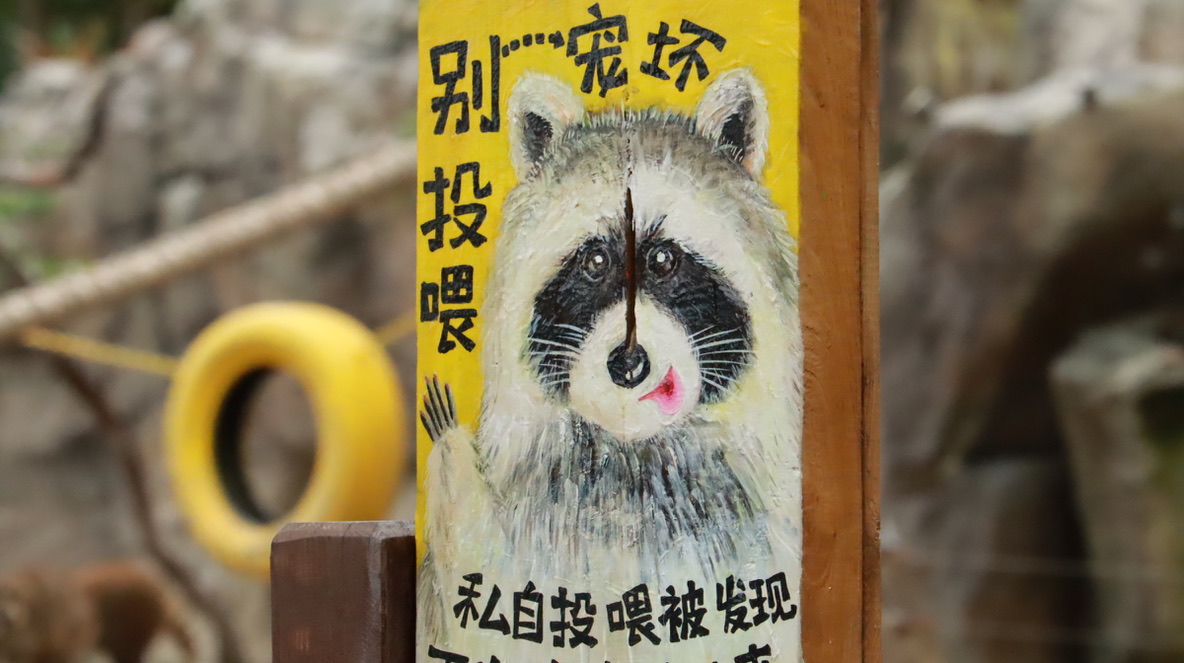 别
宠坏
投
喂
私自投喂被发现